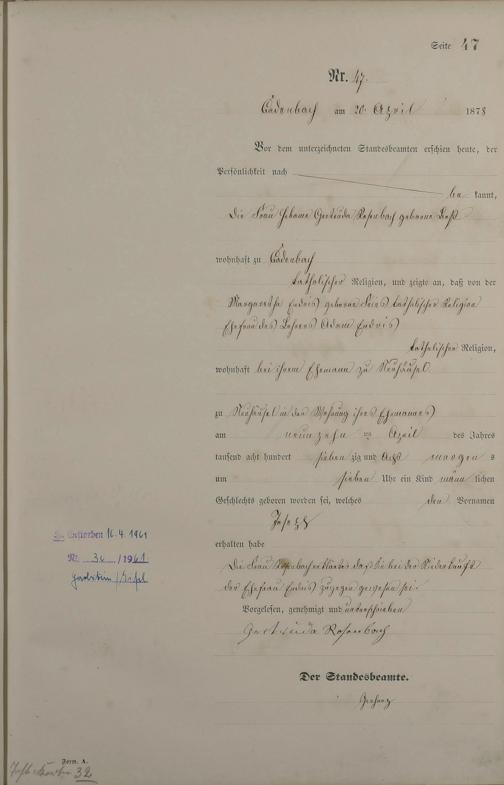 Seite 47
Nr. 47.
Cadenbach am 20. April 1878
Vor dem unterzeichneten Standesbeamten erschien heute, der
Persönlichkeit nach
be kannt,
Die Frau Hebame Gertruda Rosenbach geborene
wohnhaft zu Cadenbach
katholischer Religion, und zeigte an, daß von der
Margaretha Endris geborene katholischer Religion
Ehefrau des Lehrers Adam Endris
katholischer Religion,
wohnhaft bei ihrem Ehemann zu Neuhäusel
zu Neuhäusel in der Wohnung ihres Ehemannes
am neunzehn ten April des Jahres
tausend acht hundert sieben zig und Acht morgen s
um sieben Uhr ein Kind männ lichen
Geschlechts geboren worden sei, welches den Vornamen
Joseph
erhalten habe
Die Frau Rosenbach erklärte das sie bei der Niederkunft
der Ehefrau Endris zugegen gewesen sei.
Vorgelesen, genehmigt und unterschrieben
Gertruda Rosenbach
Der Standesbeamte.
Gestorben 16.4.1961
Nr. 30 /1961
Form. A.
32